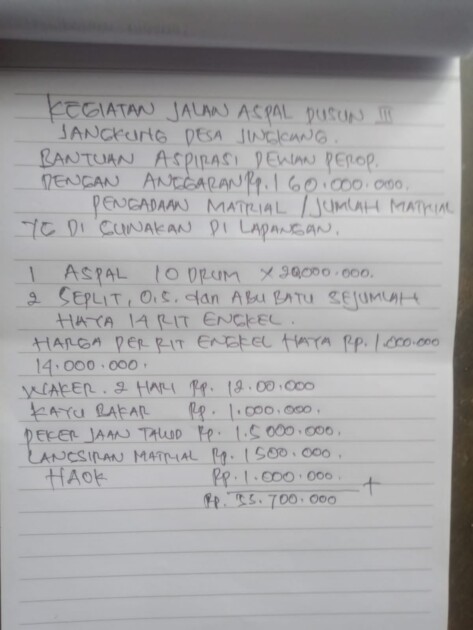 KEGIATAN JALAN ASPAL DUSUN III
JANGKUNG DESA JINGKANG.
BANTUAN ASPIRASI DEWAN PEROP.
DENGAN ANGGARAN Rp. 160.000.000.
PENGADAAN MATRIAL / JUMLAH MATRIAL
YG DI GUNAKAN DI LAPANGAN.
1 ASPAL 10 DRUM × 20,000.000.
2 SEPLIT, O.S. dan ABU BATU SEJUMLAH
HAYA 14 RIT ENGKEL.
HARGA PER RIT ENGKEL HAYA Rp. 1.000.000
14.000.000.
WAKER. 2 HARI Rp. 12.00.000
KAYU BAKAR Rp. 1.000.000.
PEKERJAAN TALUD Rp. 1.5000.000.
LANGSIRAN MATRIAL Rp. 1500.000.
HAOK Rp. 1.000.000 +
Rp. 35.700.000